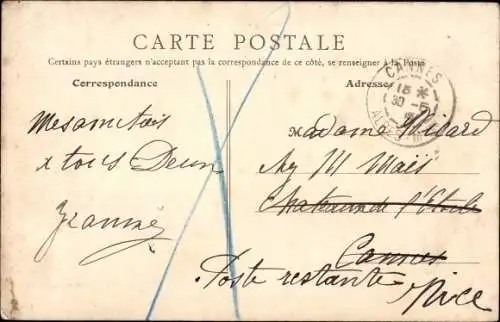 CARTE POSTALE
Certains pays étrangers n'acceptant pas la correspondance de ce côté, se renseigner à la Poste
Correspondance
Adresse
CANNES
15 *
30 -5
ALPES-M
Mes amitiés
à tous Deux
Jeanne
Madame
Cannes
Poste restante
Nice